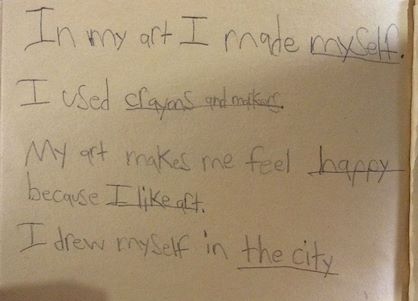 In my art I made myself.
I used crayons and markers.
My art makes me feel happy
because I like art.
I drew myself in the city